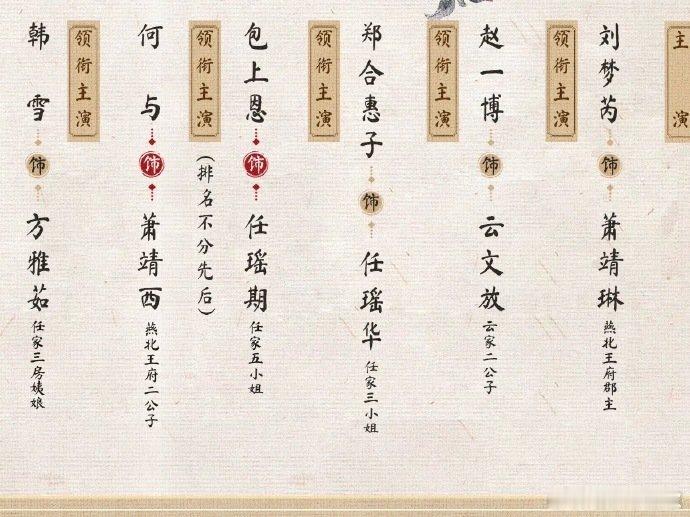 主演
刘梦芮
饰
萧靖琳
燕北王府郡主
领衔主演
赵一博
饰
云文放
云家二公子
领衔主演
郑合惠子
饰
任瑶华
任家三小姐
领衔主演
包上恩
饰
任瑶期
任家五小姐
领衔主演
(排名不分先后)
何与
饰
萧靖西
燕北王府二公子
领衔主演
韩雪
饰
方雅茹
任家三房姨娘